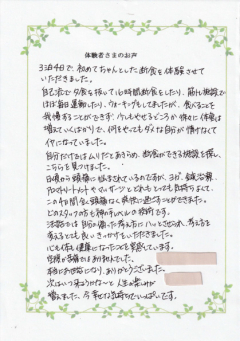 体験者さまのお声
3泊4日で、初めてちゃんとした断食を体験させて
いただきました。
自己流で夕食を抜いて16時間断食をしたり、筋トレ施設で
ほぼ毎日運動したり、ウォーキングもしてましたが、食べることを
我慢することができず、やせるどころか徐々に体重は
増えていくばかりで、何をやってもダメな自分が情けなくて
イヤになっていました。
自分だけではムリだとあきらめ、断食ができる施設を探し、
こちらを見つけました。
日頃から頭痛に悩まされているのですが、ヨガ、鍼灸治療、
アロマトリートメントやマッサージとどれもとっても気持ちよくて、
この4日間全く頭痛なく快適に過ごすことができました。
どのスタッフの方も神の手レベルの技術です。
法話では自分の偏った考え方にハッとさせられ、考え方を
考えるとても良いきっかけをいただきました。
心も体も健康になったことを実感しています。
空腹が苦痛ではありませんでした。
本当にお世話になり、ありがとうございました。
次はいつ来ようかな〜と人生の楽しみが
増えました。今幸せな気持ちでいっぱいです。